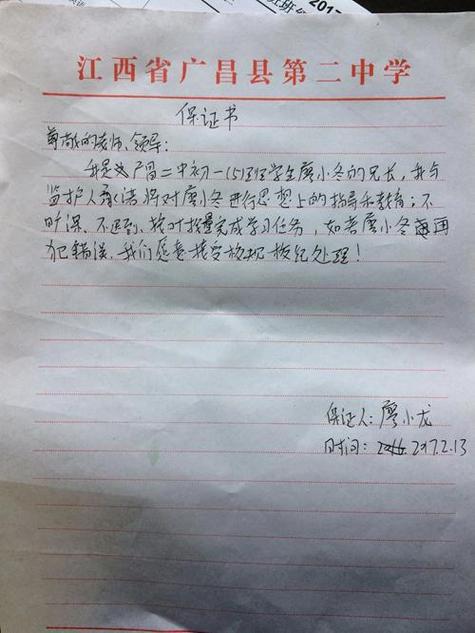 江西省广昌县第二中学
保证书
尊敬的老师、领导:
我是广昌二中初一(5)班学生廖小冬的兄长,我与
监护人承诺将对廖小冬进行思想上的指导和教育;不
旷课、不迟到、按时按量完成学习任务,如若廖小冬再
犯错误,我们愿意接受校规校纪处理!
保证人:廖小龙
时间:2017.2.13
201